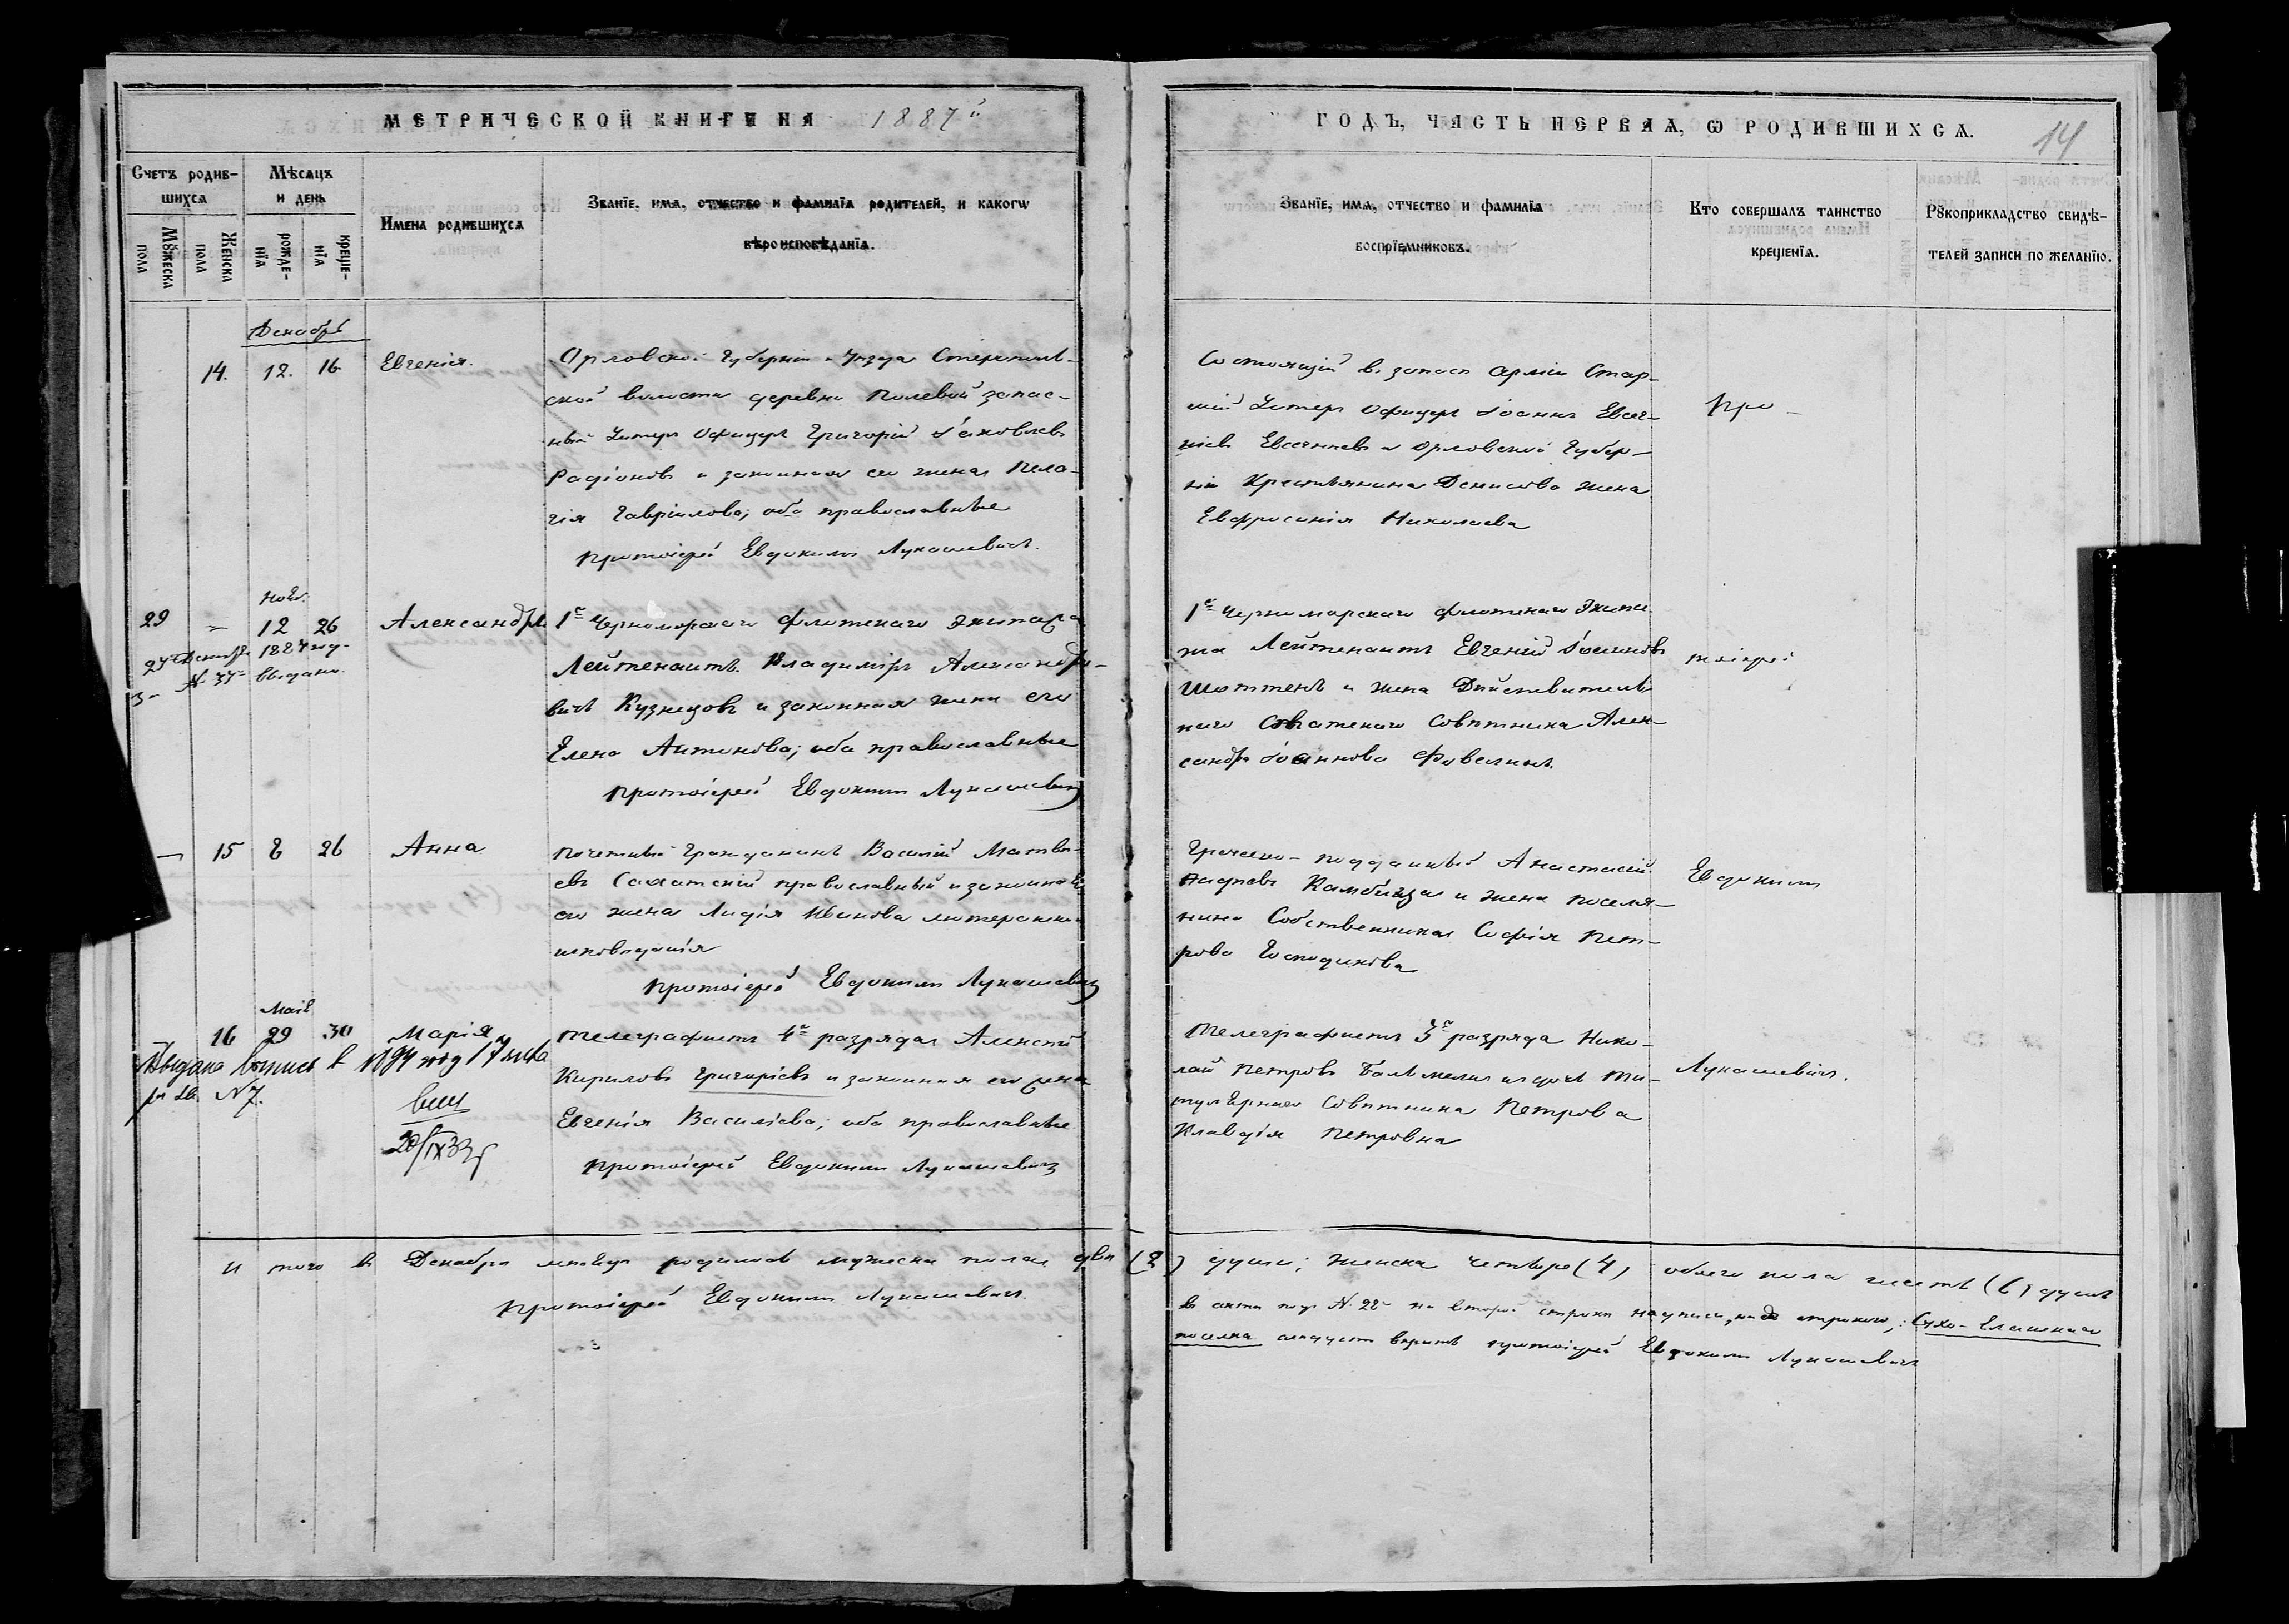 МЕТРИЧЕСКОЙ КНИГИ НА 1887й
ГОДЪ, ЧАСТЬ ПЕРВАЯ, Ѡ РОДИВШИХСѦ.
14
Счетъ родив-
шихсѧ
Мѣсѧцъ
и день
Мꙋжеска
пола
Женска
пола
рожде-
нїѧ
креще-
нїѧ
Имена родившихсѧ
Званїе, имѧ, отчество и фамилїѧ родителей, и какогѡ
вѣроисповѣданїѧ.
Званїе, имѧ, отчество и фамилїѧ
воспрїемниковъ.
Кто совершалъ таинство
крещенїѧ.
Рꙋкоприкладство свидѣ-
телей записи по желанїю.
Декабрь
14. 12. 16 Евгенія.
Орловской Губерніи и Уѣзда
ской волости деревни Полевой запас-
ный Унтеръ Офицеръ Григорій Іаковлевъ
Радіоновъ и законная его жена Пела-
гія Гавріилова; оба православные
Протоіерей Евдокимъ Лукашевичъ.
Состоящій въ запасѣ арміи Стар-
шій Унтеръ Офицеръ Іоаннъ Евсиг-
ніевъ Евсигніевъ и Орловской Губер-
ніи Крестьянина Денисова жена
Евфросинія Николаева
Про-
Нояб.
29 - 12 26 Александръ
Декабр. 1887 год.
выдано.
1го Черноморскаго флотскаго Экипажа
Лейтенантъ Владиміръ Александро-
вичъ Кузнецовъ и законная жена его
Елена Антонова; оба православные
Протоіерей Евдокимъ Лукашевичъ
1го Черноморскаго флотскаго Экипа-
жа Лейтенантъ Евгеній Іоанновъ
Шоттенъ и жена Дѣйствитель-
наго Статскаго Совѣтника Алек-
сандра Іоаннова
тоіерей
— 15 8 26 Анна
Почетный Гражданинъ Василій Матвѣ-
евъ православный и законная
его жена Лидія Иванова лютеранск.
исповѣданія
Протоіерей Евдокимъ Лукашевичъ
Греческо-подданный Анастасій
и жена поселя-
нина Собственника Софія Пет-
рова Господинова
Евдокимъ
Маія
16 29 30 Марія
Выдана выпись в 1894 году 17
№ 7.
20/IX 33г
Телеграфистъ 4го разряда Алексѣй
Кириловъ Григоріевъ и законная его жена
Евгенія Василіева; оба православные
Протоіерей Евдокимъ Лукашевичъ
Телеграфистъ 3го разряда Нико-
лай Петровъ и дочь Ти-
тулярнаго Совѣтника Петрова
Клавдія Петровна
Лукашевичъ.
И того въ Декабрѣ мѣсяцѣ родилось мужеска пола двѣ (2) души; женска четыре (4) обоего пола шесть (6) душъ
Протоіерей Евдокимъ Лукашевичъ.
въ актѣ подъ № 22 на второй строкѣ надписи, надъ строкою,
поселка слѣдуетъ вѣрить протоіерей Евдокимъ Лукашевичъ